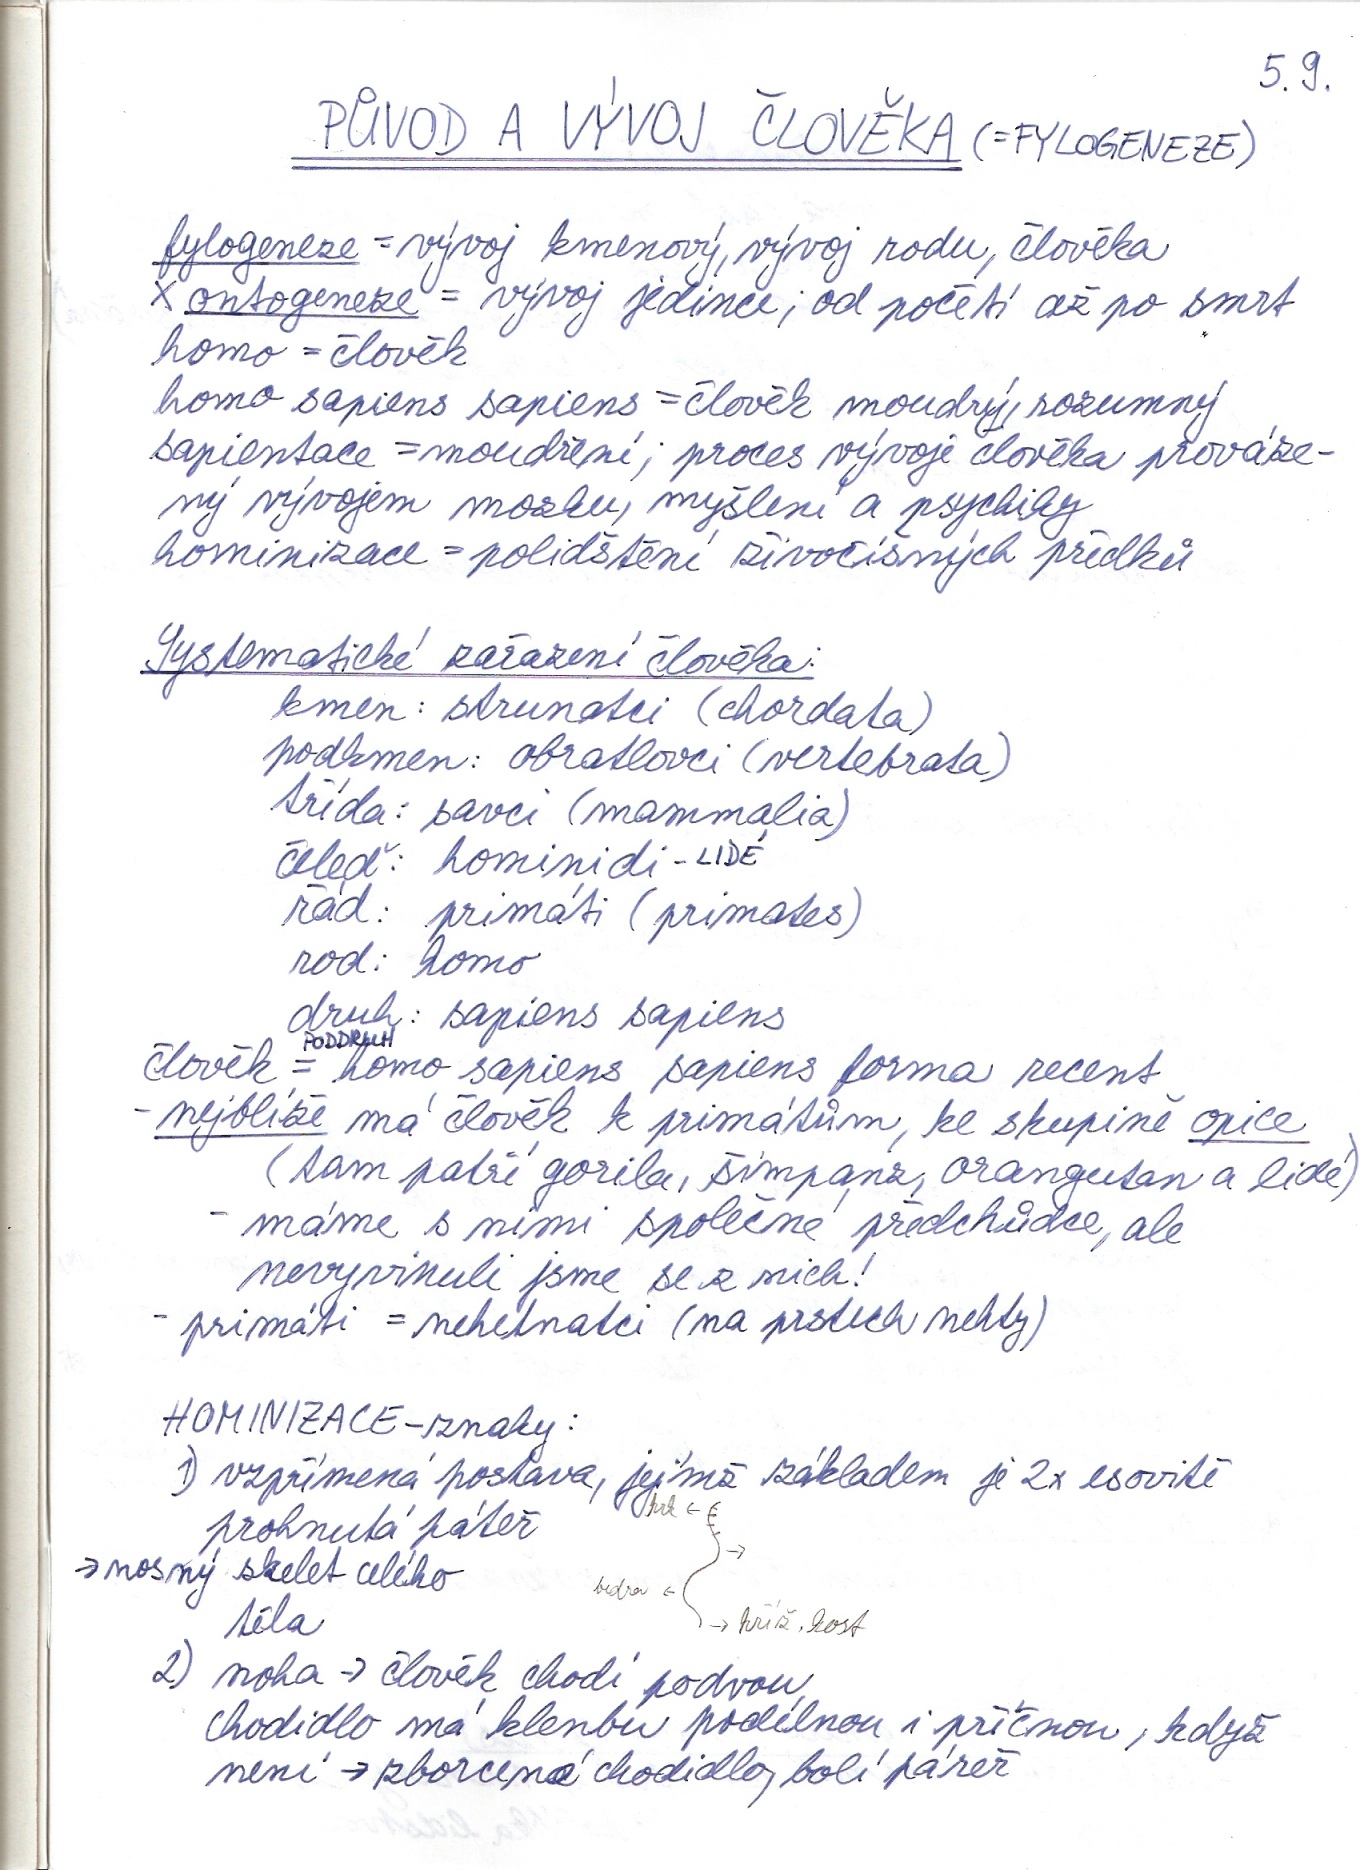 5.9.
PŮVOD A VÝVOJ ČLOVĚKA (=FYLOGENEZE)
fylogeneze = vývoj kmenový, vývoj rodu, člověka
x ontogeneze = vývoj jedince; od početí až po smrt
homo = člověk
homo sapiens sapiens = člověk moudrý, rozumný
sapientace = moudření; proces vývoje člověka prováze-
ný vývojem mozku, myšlení a psychiky
hominizace = polidštění živočišných předků
Systematické zařazení člověka:
kmen: strunatci (chordata)
podkmen: obratlovci (vertebrata)
třída: savci (mammalia)
čeleď: hominidi - LIDÉ
řád: primáti (primates)
rod: homo
druh: sapiens sapiens
PODDRUH
člověk = homo sapiens sapiens forma recent
- nejblíže má člověk k primátům, ke skupině opice
(tam patří gorila, šimpanz, orangutan a lidé)
- máme s nimi společné předchůdce, ale
nevyvinuli jsme se z nich!
- primáti = nehetnatci (na prstech nehty)
HOMINIZACE - znaky:
1) vzpřímená postava, jejímž základem je 2x esovitě
prohnutá páteř
krk ←
→
→ nosný skelet celého
bedra ←
těla
→ kříž. kost
2) noha → člověk chodí podvou,
chodidlo má klenbu podélnou i příčnou, když
není → zborcená chodidla, bolí páteř